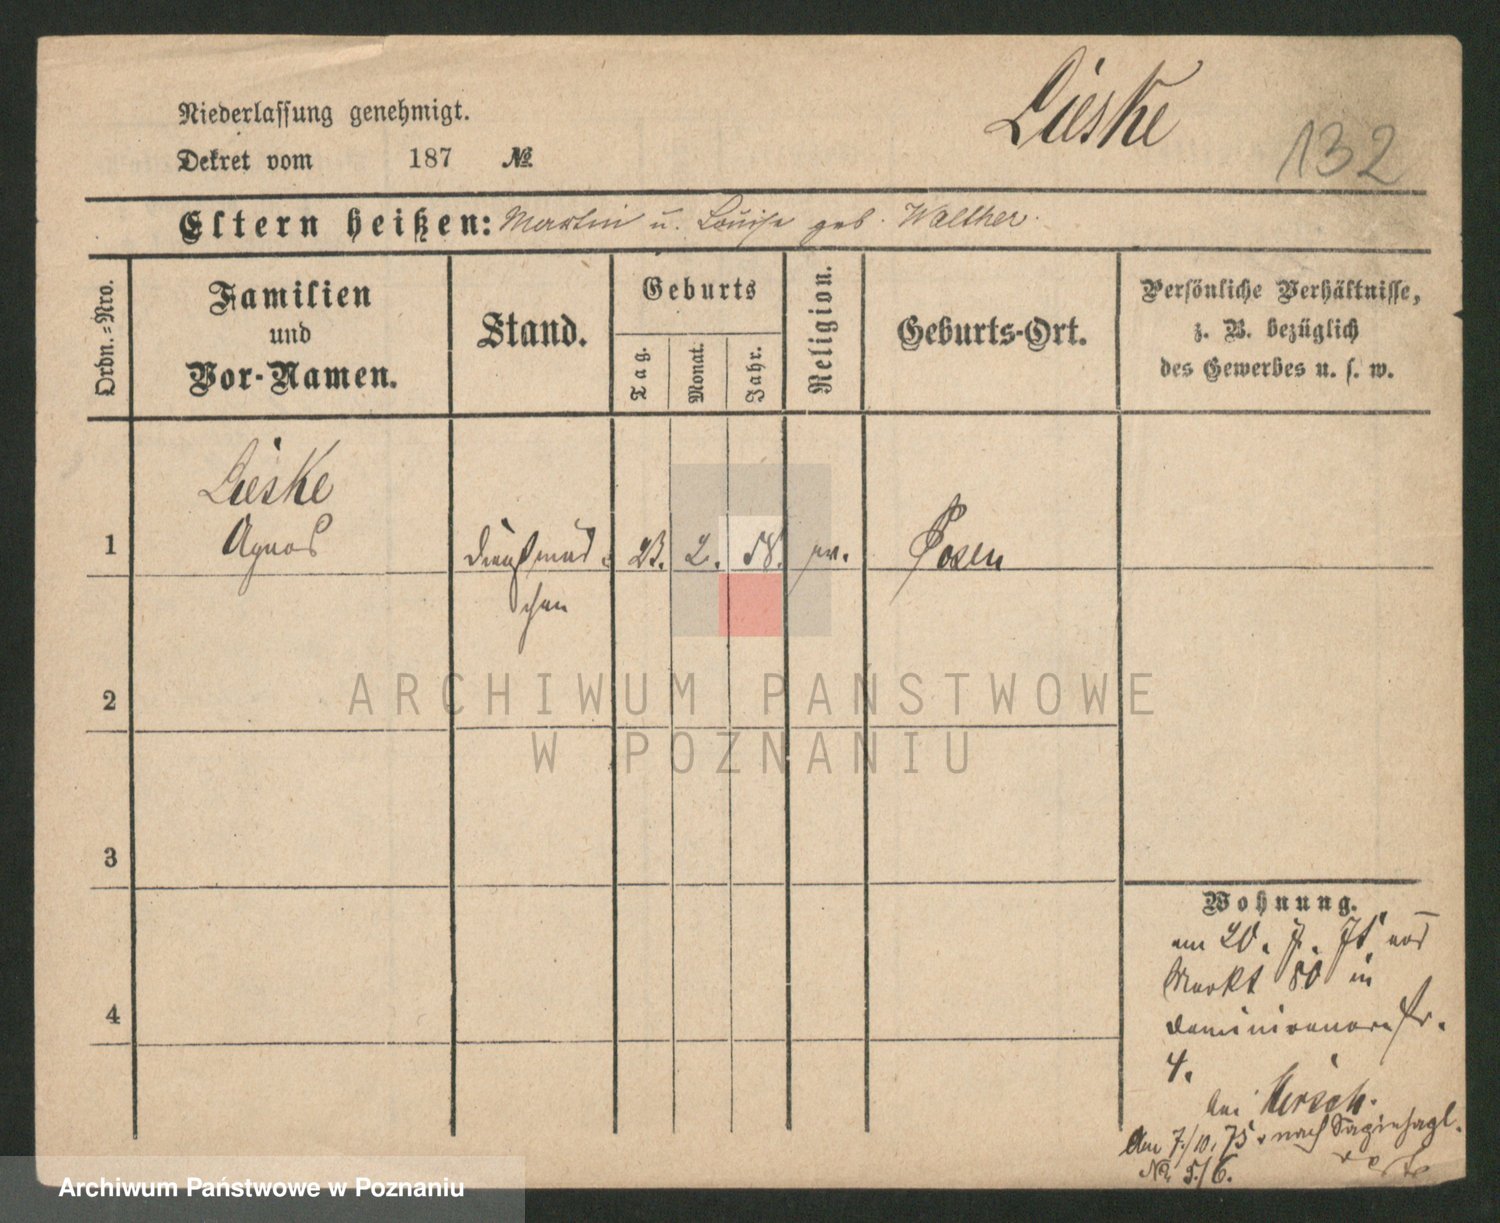 Lieske
132
Niederlassung genehmigt.
Dekret vom 187 №
Eltern heißen: Martin u. Louise geb. Walther.
Ordn.=Nro.
Familien
und
Vor-Namen.
Stand.
Geburts
Tag.
Monat.
Jahr.
Religion.
Geburts-Ort.
Persönliche Verhältnisse,
z. B. bezüglich
des Gewerbes u. s. w.
Lieske
1 Agnes Dienstmäd= 23. 2. 58. ev. Posen
chen
2
3
4
Wohnung.
am 20. 7. 75 von
Markt 80 in
Dominicanerstr.
4.
bei Hirsch.
Am 7/10. 75 nach
No. 5/6.
ARCHIWUM PAŃSTWOWE
W POZNANIU
Archiwum Państwowe w Poznaniu